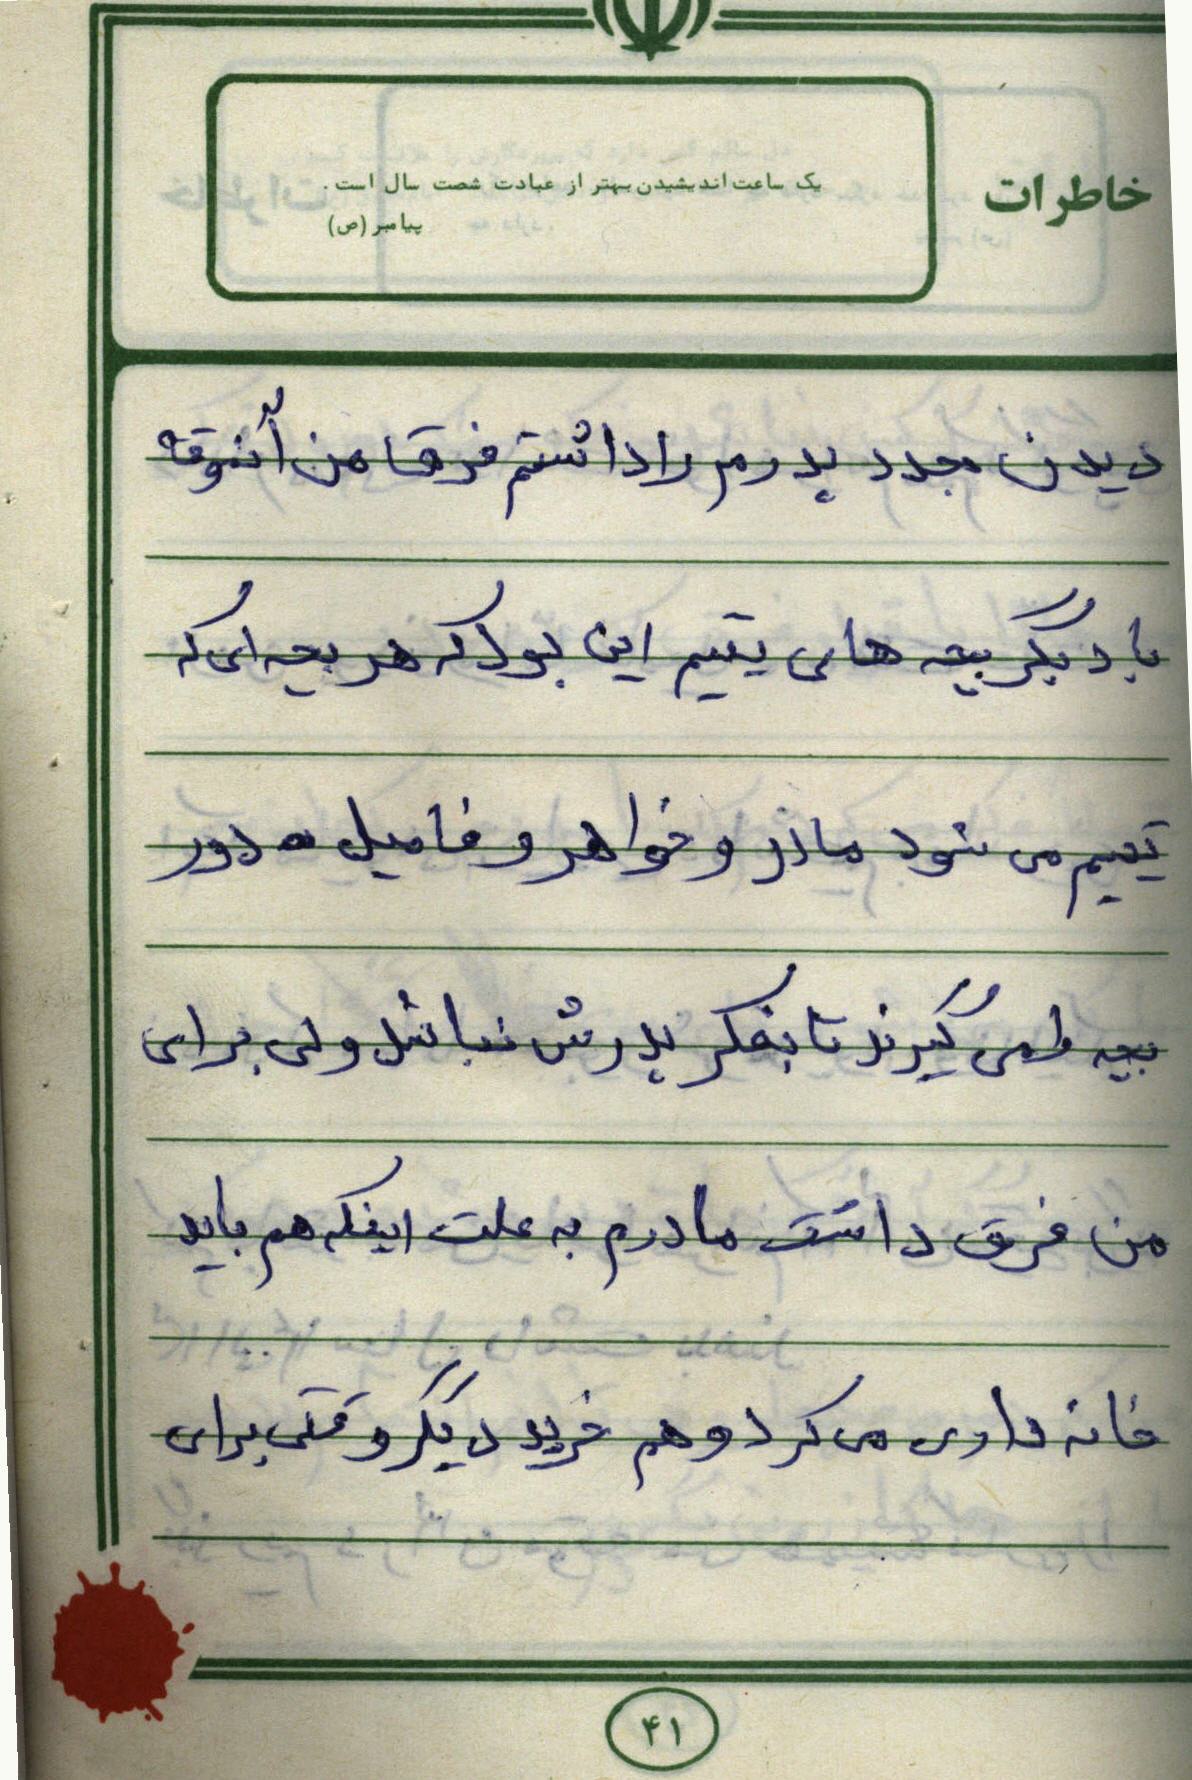 خاطرات
یک ساعت اندیشیدن بهتر از عبادت شصت سال است.
پیامبر (ص)
دیدن مجدد پدرم را داشتم فرق من آنموقه
با دیگر بچه های یتیم این بود که هر بچه ای که
یتیم می شود مادر و خواهر و فامیل دور
بچه را می گیرند تا بفکر پدرش نباشد ولی برای
من فرق داشت مادرم به علت اینکه هم باید
خانه داری می کرد و هم خرید دیگر وقتی برای
۴۱